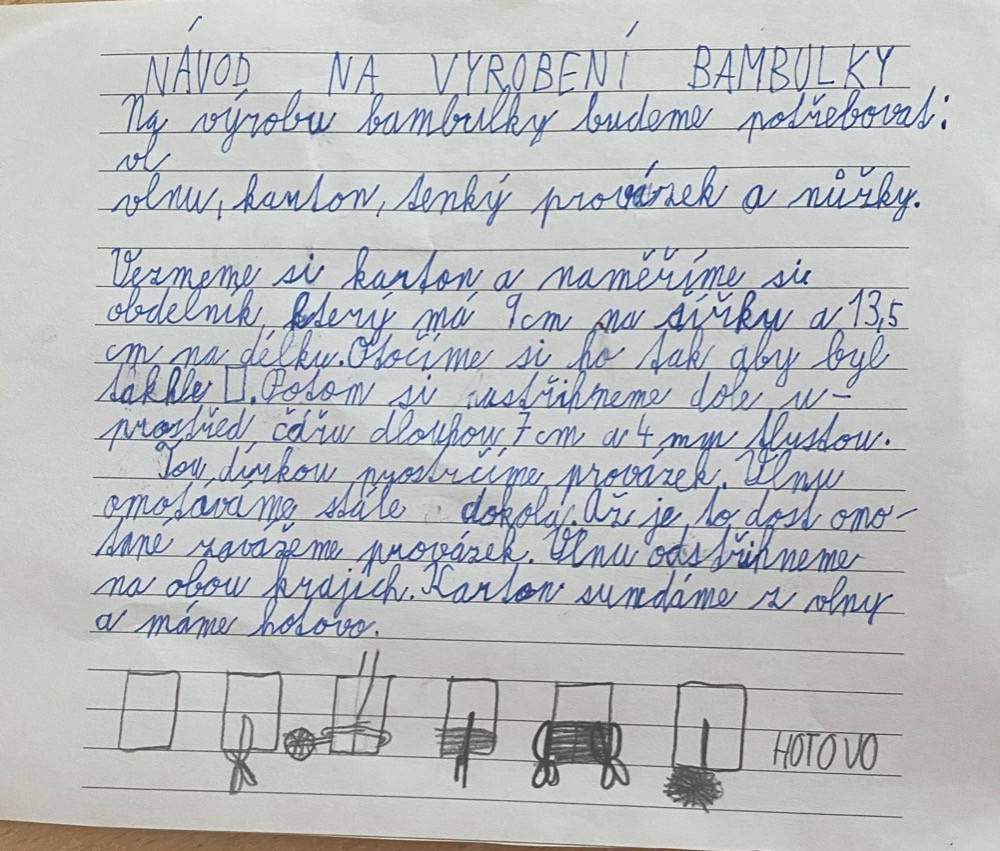 NÁVOD NA VYROBENÍ BAMBULKY
Na výrobu bambulky budeme potřebovat:
vl
vlnu, karton, tenký provázek a nůžky.
Vezmeme si karton a naměříme si
obdelník, který má 9cm na šířku a 13,5
cm na délku. Otočíme si ho tak, aby byl
takhle ▯. Potom si ustřihneme dole u-
prostřed, čáru dlouhou 7 cm a 4 mm tlustou.
Tou dírkou prostrčíme provázek. Vlnu
omotáváme stále dokola. Až je to dost omo-
tané zavážeme provázek. Vlnu odstřihneme
na obou krajích. Karton sundáme z vlny
a máme hotovo.
HOTOVO